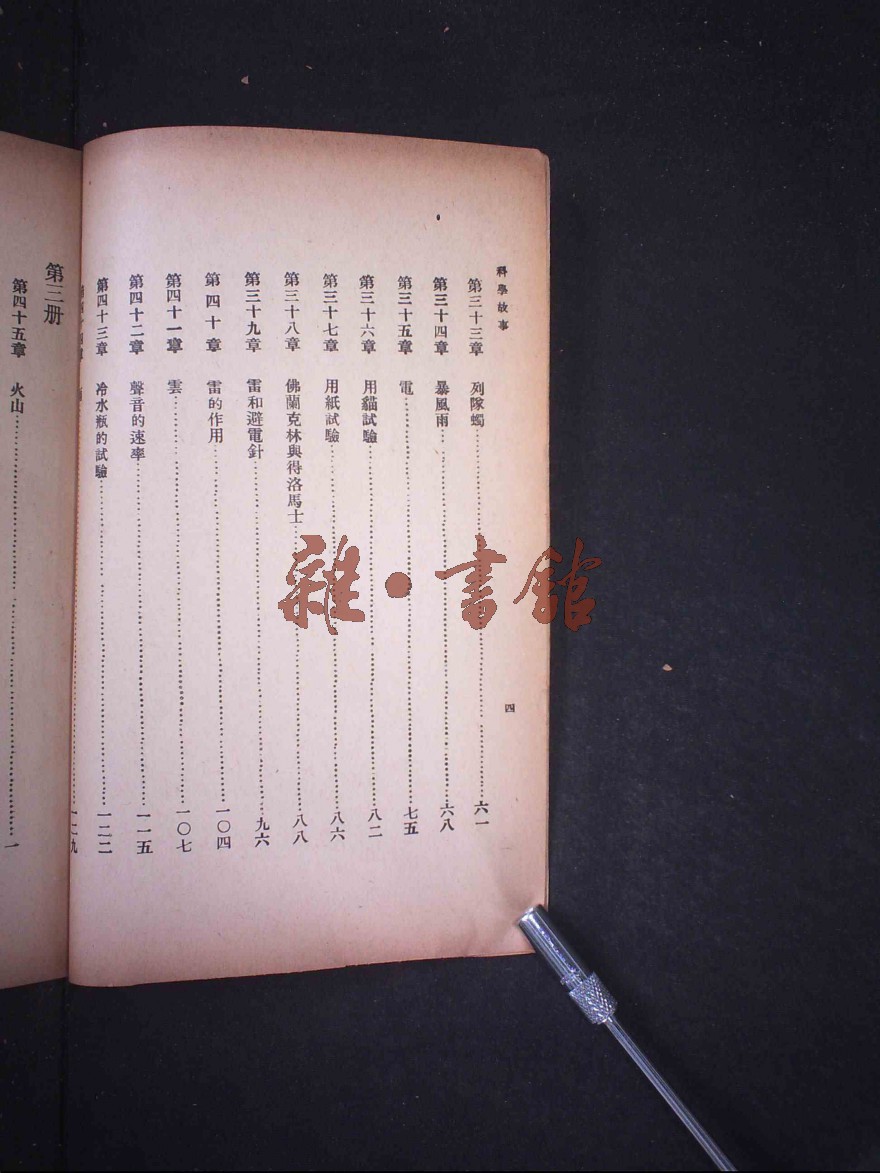 科學故事
四
第三十三章 列隊蠋 六一
第三十四章 暴風雨 六八
第三十五章 電 七五
第三十六章 用貓試驗 八二
第三十七章 用紙試驗 八六
第三十八章 佛蘭克林與得洛馬士 八八
第三十九章 雷和避電針 九六
第四十章 雷的作用 一〇四
第四十一章 雲 一〇七
第四十二章 聲音的速率 一一五
第四十三章 冷水瓶的試驗 一二二
章 一二九
第三册
第四十五章 火山 一
雜·書館